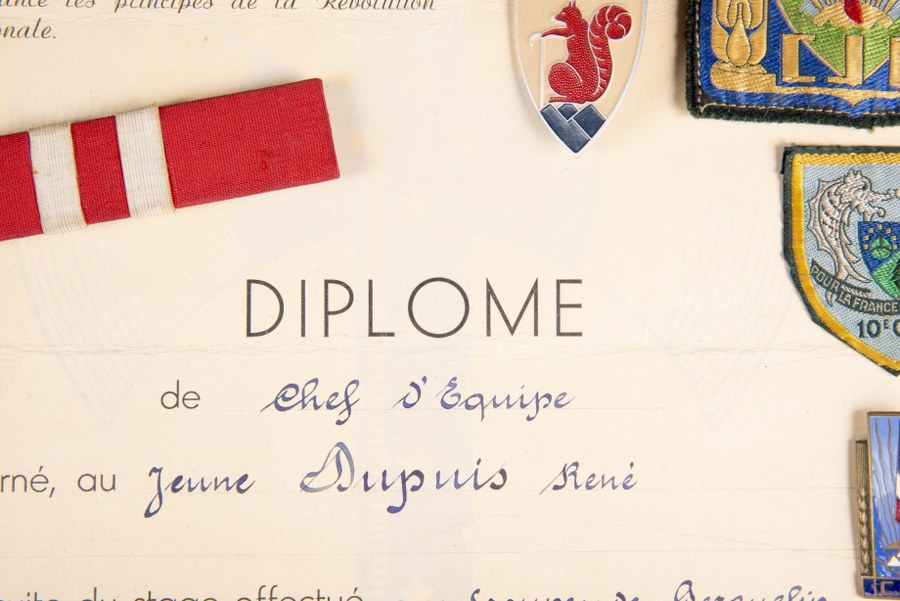 les principes de la Révolution
onale.
DIPLOME
de Chef d'Equipe
rné, au Jeune Dupuis René
du stage effectué
CJF
POUR LA FRANCE
10E